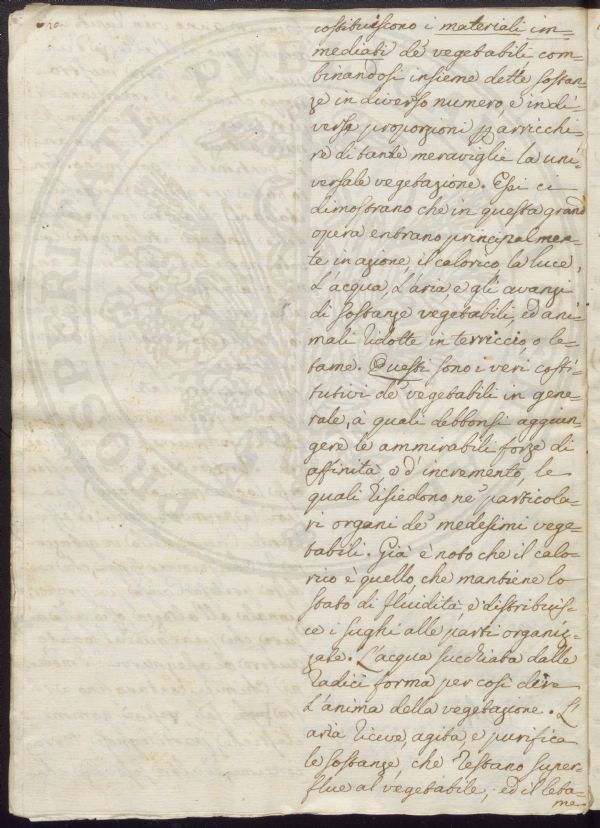 costituiscono i materiali im=
mediati de' vegetabili com=
binandosi insieme dette sostan=
ze in diverso numero, e in di=
versa proporzioni p arricchi=
re di tante meraviglie la uni=
versale vegetazione. Essi ci
dimostrano che in questa grand
opera entrano principalmen=
te in azione, il calorico, la luce,
L'acqua, L'aria e gli avanzi
di sostanze vegetabili, ed ani=
mali ridotte in terriccio, o le=
tame. Questi sono i veri costi=
tutivi de' vegetabili in gene=
rale, à quali debbonsi aggiun=
gere le ammirabili forze di
affinità, e d'incremento, le
quali risiedono ne' particola=
ri organi de' medesimi vege=
tabili. Già è noto che il calo=
rico è quello, che mantiene lo
stato di fluidità, e distribuis=
ce i sughi alle parti organiz=
zate. L'acqua succhiata dalle
radici forma per così dire
L'anima della vegetazione. L'
aria riceve, agita, e purifica
le sostanze, che restano super=
flue al vegetabile; ed il leta=
me=
PROSPERITATI PUB